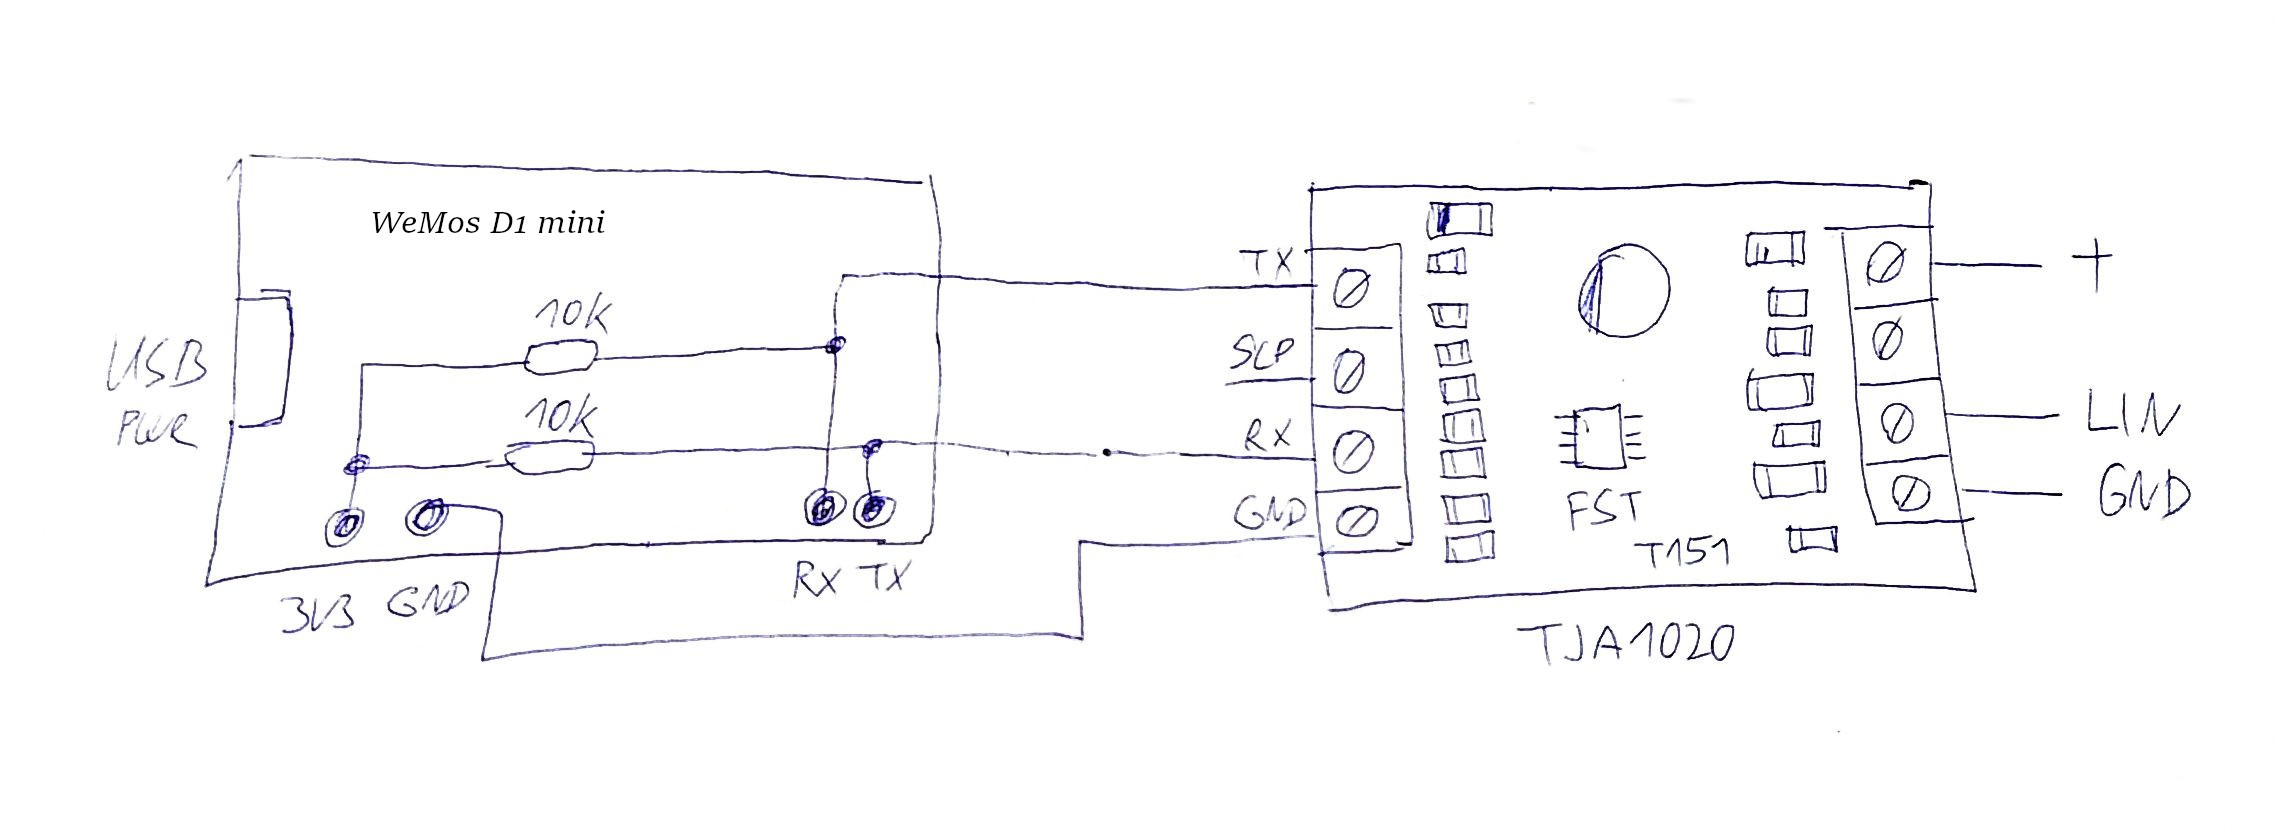 WeMos D1 mini
USB
PWR
10K
10K
3V3 GND
RX TX
TX
SLP
RX
GND
FST
T151
TJA1020
+
LIN
GND